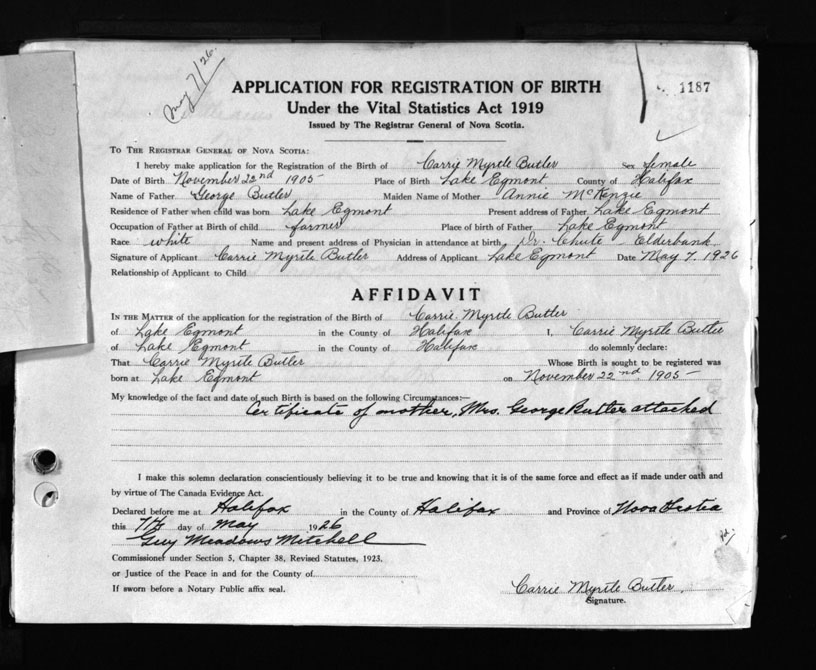 May 7/26.
1187
APPLICATION FOR REGISTRATION OF BIRTH
Under the Vital Statistics Act 1919
Issued by The Registrar General of Nova Scotia.
TO THE REGISTRAR GENERAL OF NOVA SCOTIA:
I hereby make application for the Registration of the Birth of Carrie Myrtle Butler Sex female
Date of Birth November 22nd 1905 Place of Birth Lake Egmont County of Halifax
Name of Father George Butler Maiden Name of Mother Annie McKenzie
Residence of Father when child was born Lake Egmont Present address of Father Lake Egmont
Occupation of Father at Birth of child farmer Place of birth of Father Lake Egmont
Race white Name and present address of Physician in attendance at birth, Dr. Chute Elderbank
Signature of Applicant Carrie Myrtle Butler Address of Applicant Lake Egmont Date May 7, 1926
Relationship of Applicant to Child
AFFIDAVIT
IN THE MATTER of the application for the registration of the Birth of Carrie Myrtle Butler
of Lake Egmont in the County of Halifax I, Carrie Myrtle Butler
of Lake Egmont in the County of Halifax do solemnly declare:
That Carrie Myrtle Butler Whose Birth is sought to be registered was
born at Lake Egmont on November 22nd. 1905
My knowledge of the fact and date of such Birth is based on the following Circumstances:—
Certificate of mother, Mrs. George Butler attached
I make this solemn declaration conscientiously believing it to be true and knowing that it is of the same force and effect as if made under oath and
by virtue of The Canada Evidence Act.
Declared before me at Halifax in the County of Halifax and Province of Nova Scotia
this 7th day of May 1926
Guy Meadows Mitchell
Commissioner under Section 5, Chapter 38, Revised Statutes, 1923.
or Justice of the Peace in and for the County of
If sworn before a Notary Public affix seal.
Carrie Myrtle Butler.
Signature.